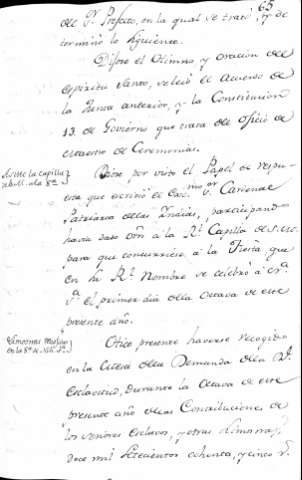 65
del Sr. Prefecto, en la qual se trató, y de
terminó lo siguiente.
Dijose el Himno, y oracion del
Espiritu Santo, se leió el Acuerdo de
la Junta anterior, y la Constitucion
13. de Govierno que trata del oficio de
Maestro de Ceremonias.
Asiste la capilla
Rl. a la 8ª
por visto el Papel de respu
esta que escrivió el Exc.mo Sr. Cardenal
Patriarca de las Indias, participando
havia dado orn. a la Rl. Capilla de S. M.
para que concurriese a la Fiesta que
en su Rl. Nombre se celebró a nra.
Sª. el primer dia de la Octava de este
presente año.
Limosnas
en la 8ª de
Hice presente haverse recogido
en la Mesa de la Demanda de la Rl.
Esclavitud, durante la Octava de este
presente año de las Contribuciones de
los señores Esclavos, y otras Limosnas,
doce mil setecientos ochenta, y cinco rs.